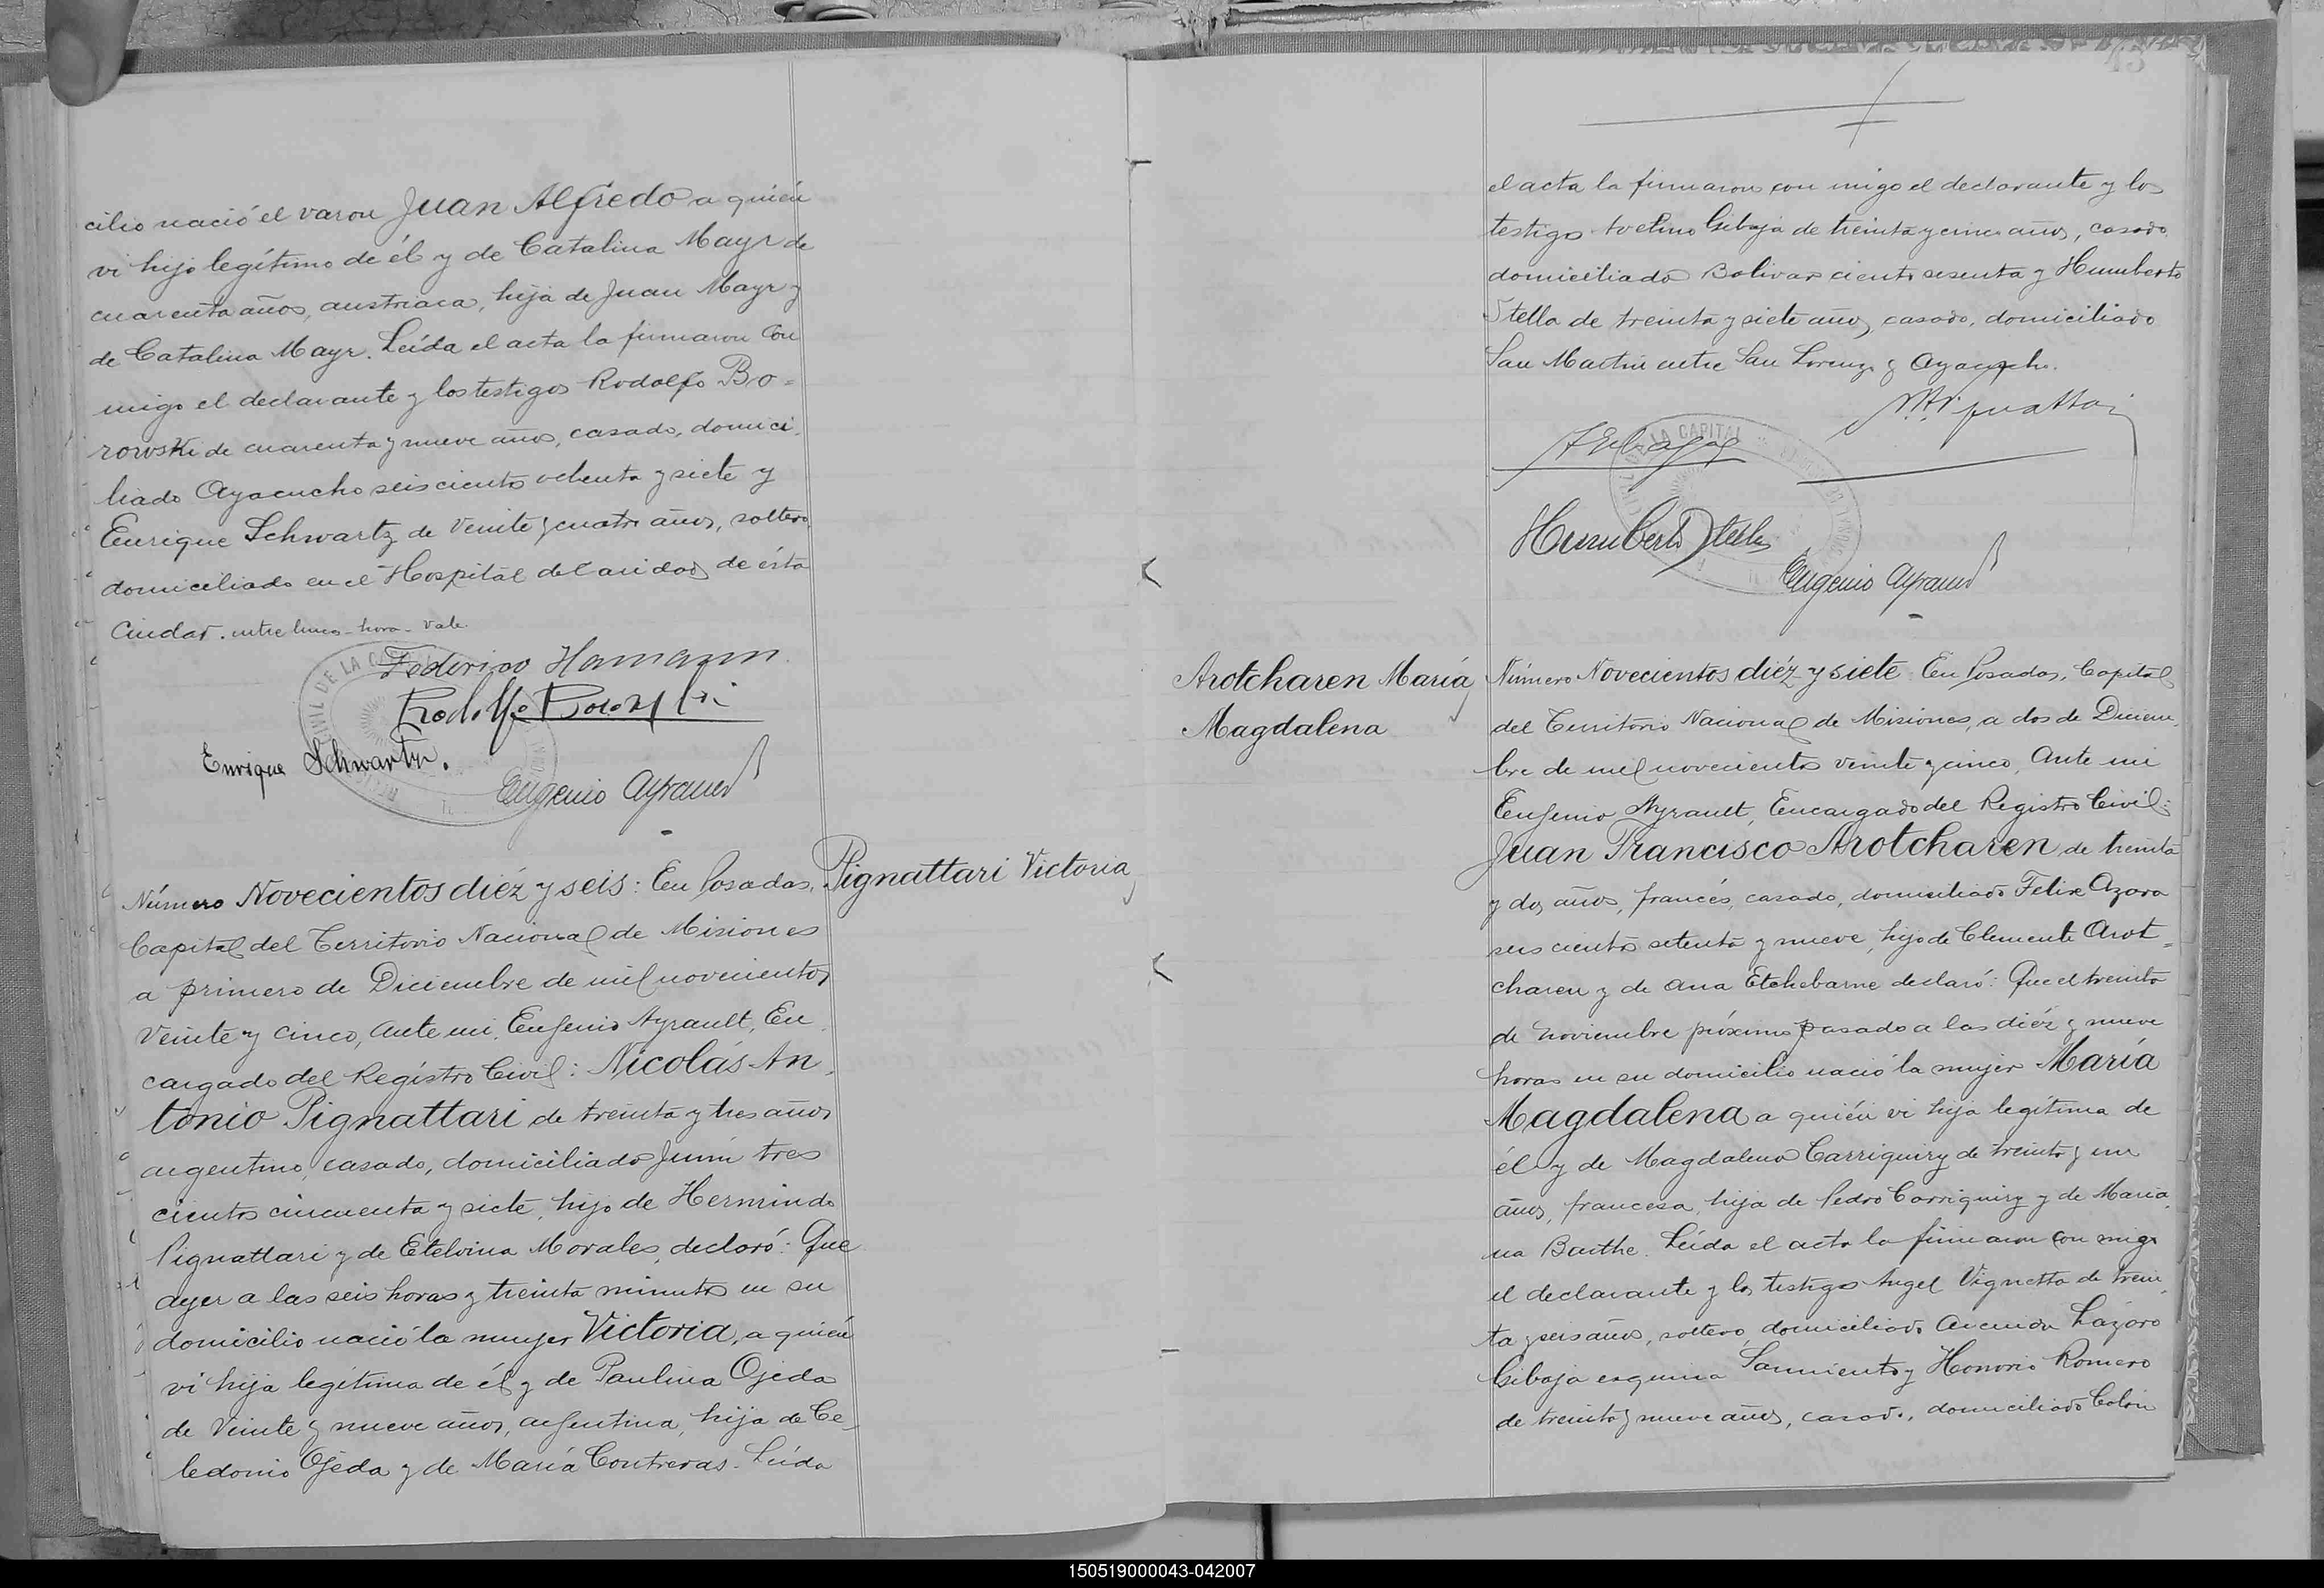 cilio nació el varon Juan Alfredo a quién
vi hijo legítimo de él y de Catalina Mayr de
cuarenta años, austriaca, hija de Juan Mayr y
de Catalina Mayr. Leída el acta la firmaron con
migo el declarante y los testigos Rodolfo Bo-
rowski de cuarenta y nueve años, casado, domici
liado Ayacucho seiscientos ochenta y siete y
Enrique Schwartz de veinte y cuatro años, soltero
domiciliado en el Hospital de Caridad de ésta
Ciudad. entre lineas - hora - vale.
Federico Hamann
Rodolfo Borowski
Enrique Schwartz.
Eugenio Ayrault
Número Novecientos diéz y seis: En Posadas,
Pignattari Victoria
Capital del Territorio Nacional de Misiones
a primero de Diciembre de mil novecientos
veinte y cinco, ante mi, Eugenio Ayrault, En
cargado del Registro Civil: Nicolás An
tonio Pignattari de treinta y tres años
argentino, casado, domiciliado Junin tres
cientos cincuenta y siete, hijo de Hermindo
Pignattari y de Etelvina Morales, declaró: Que
ayer a las seis horas y treinta minutos en su
domicilio nació la mujer Victoria, a quién
vi hija legítima de él y de Paulina Ojeda
de veinte y nueve años, argentina, hija de Ce-
ledonio Ojeda y de María Contreras. Leída
el acta la firmaron con migo el declarante y los
testigos Avelino Gibaja de treinta y cinco años, casado,
domiciliado Bolivar ciento sesenta y Humberto
Stella de treinta y siete años, casado, domiciliado
San Martin entre San Lorenzo y Ayacucho.
Humberto Stella
Eugenio Ayrault
Arotcharen María
Magdalena
Número Novecientos diéz y siete: En Posadas, Capital
del Territorio Nacional de Misiones, a dos de Diciem
bre de mil novecientos veinte y cinco, Ante mi
Eugenio Ayrault, Encargado del Registro Civil:
Juan Francisco Arotcharen de treinta
y dos años, francés, casado, domiciliado Felix Azara
seis cientos setenta y nueve, hijo de Clemente Arot=
charen y de Ana Etchebarne declaró: Que el treinta
de Noviembre próximo pasado a las diéz y nueve
horas en su domicilio nació la mujer María
Magdalena a quién vi hija legítima de
él y de Magdalena Carriquiry de treinta y un
años, francesa, hija de Pedro Carriquiry y de Maria
na Barthe. Leída el acta la firmaron con migo
el declarante y los testigos Angel Vignetta de trein
ta y seis años, soltero, domiciliado Avenida Lázaro
Gibaja esquina Sarmiento y Honorio Romero
de treinta y nueve años, casado, domiciliado Colón
150519000043-042007